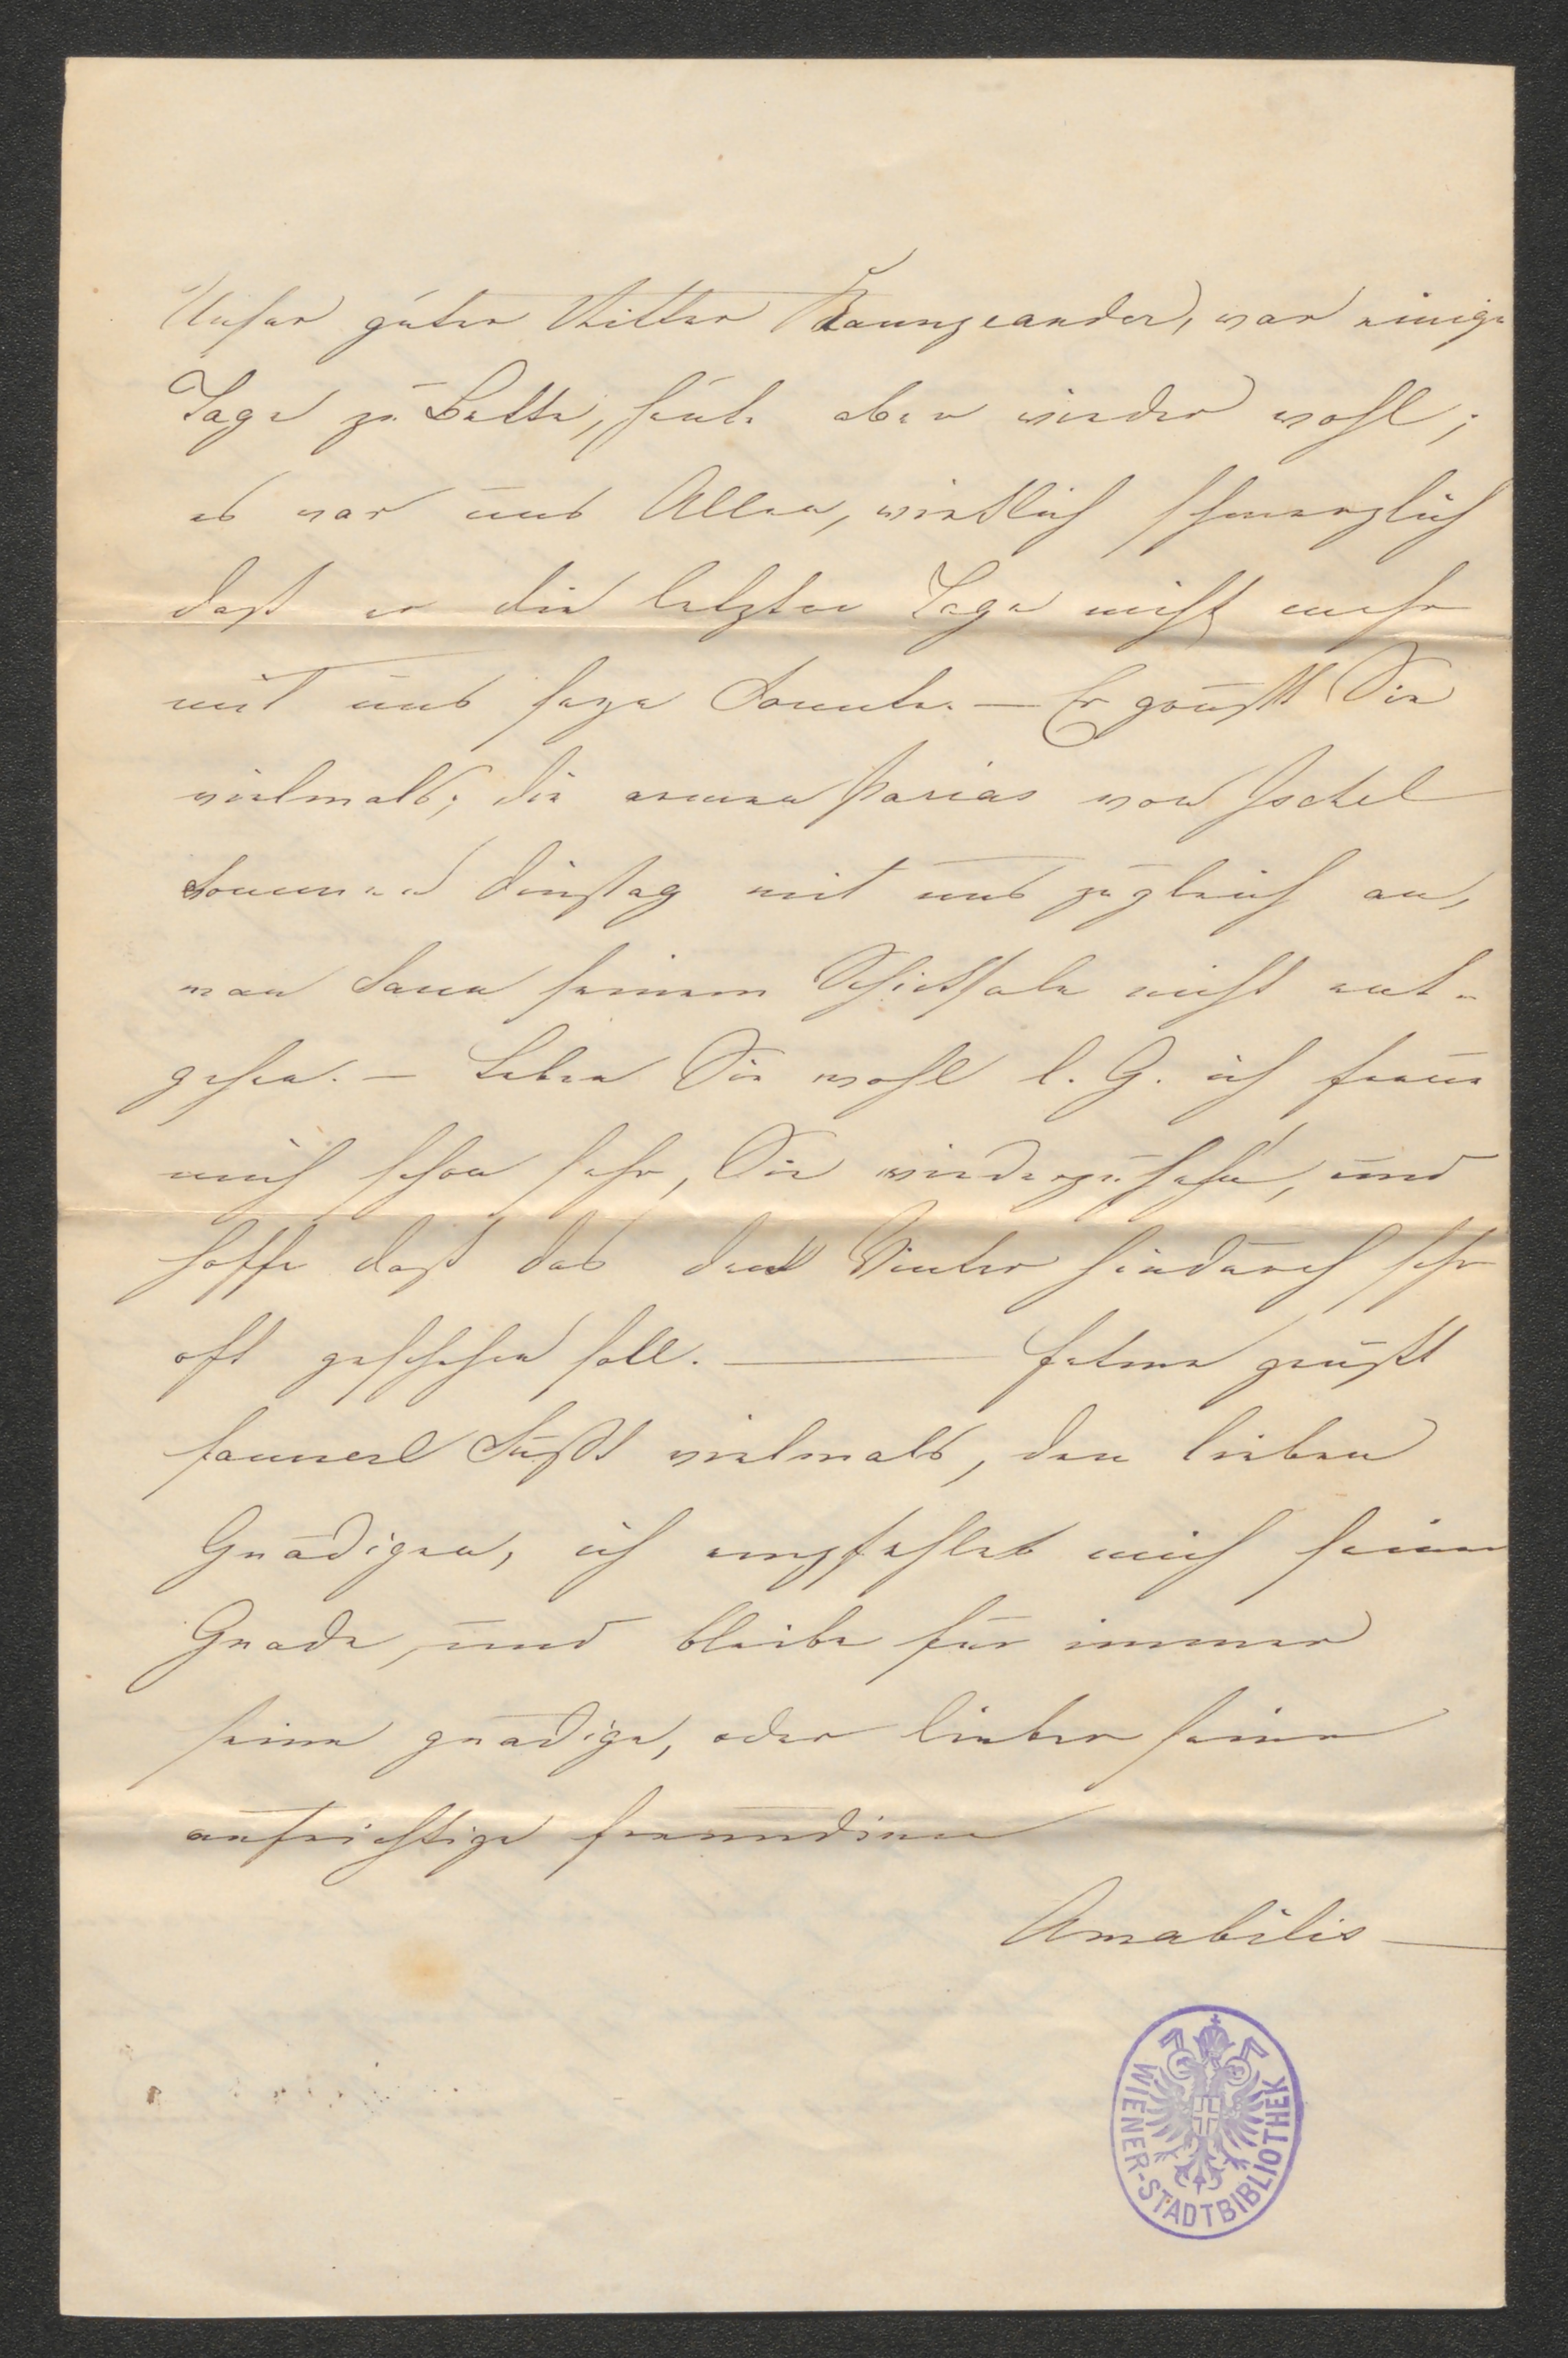 Unser guter Ritter Baumgeander, war einige
Tage zu Bette, heute aber wieder wohl;
es war uns Allen, wirklich schmerzlich
daß er die letzten Tage nicht mehr
mit uns sein konnte. — Er grüßt Sie
vielmals; die armen Parias von Ischel
kommen Dinstag mit uns zugleich an,
man kann seinem Schicksale nicht ent-
gehen. — Leben Sie wohl l. G. ich freue
mich schon sehr, Sie wiederzusehen, und
hoffe daß das den Winter hindurch sehr
oft geschehen soll. — Fatme grüßt
Fannerl küßt vielmals, den lieben
Gnädigen, ich empfehle mich seiner
Gnade, und bleibe für immer
seine gnädige, oder lieber seine
aufrichtige Freundinn
Amabilis —
WIENER-STADTBIBLIOTHEK